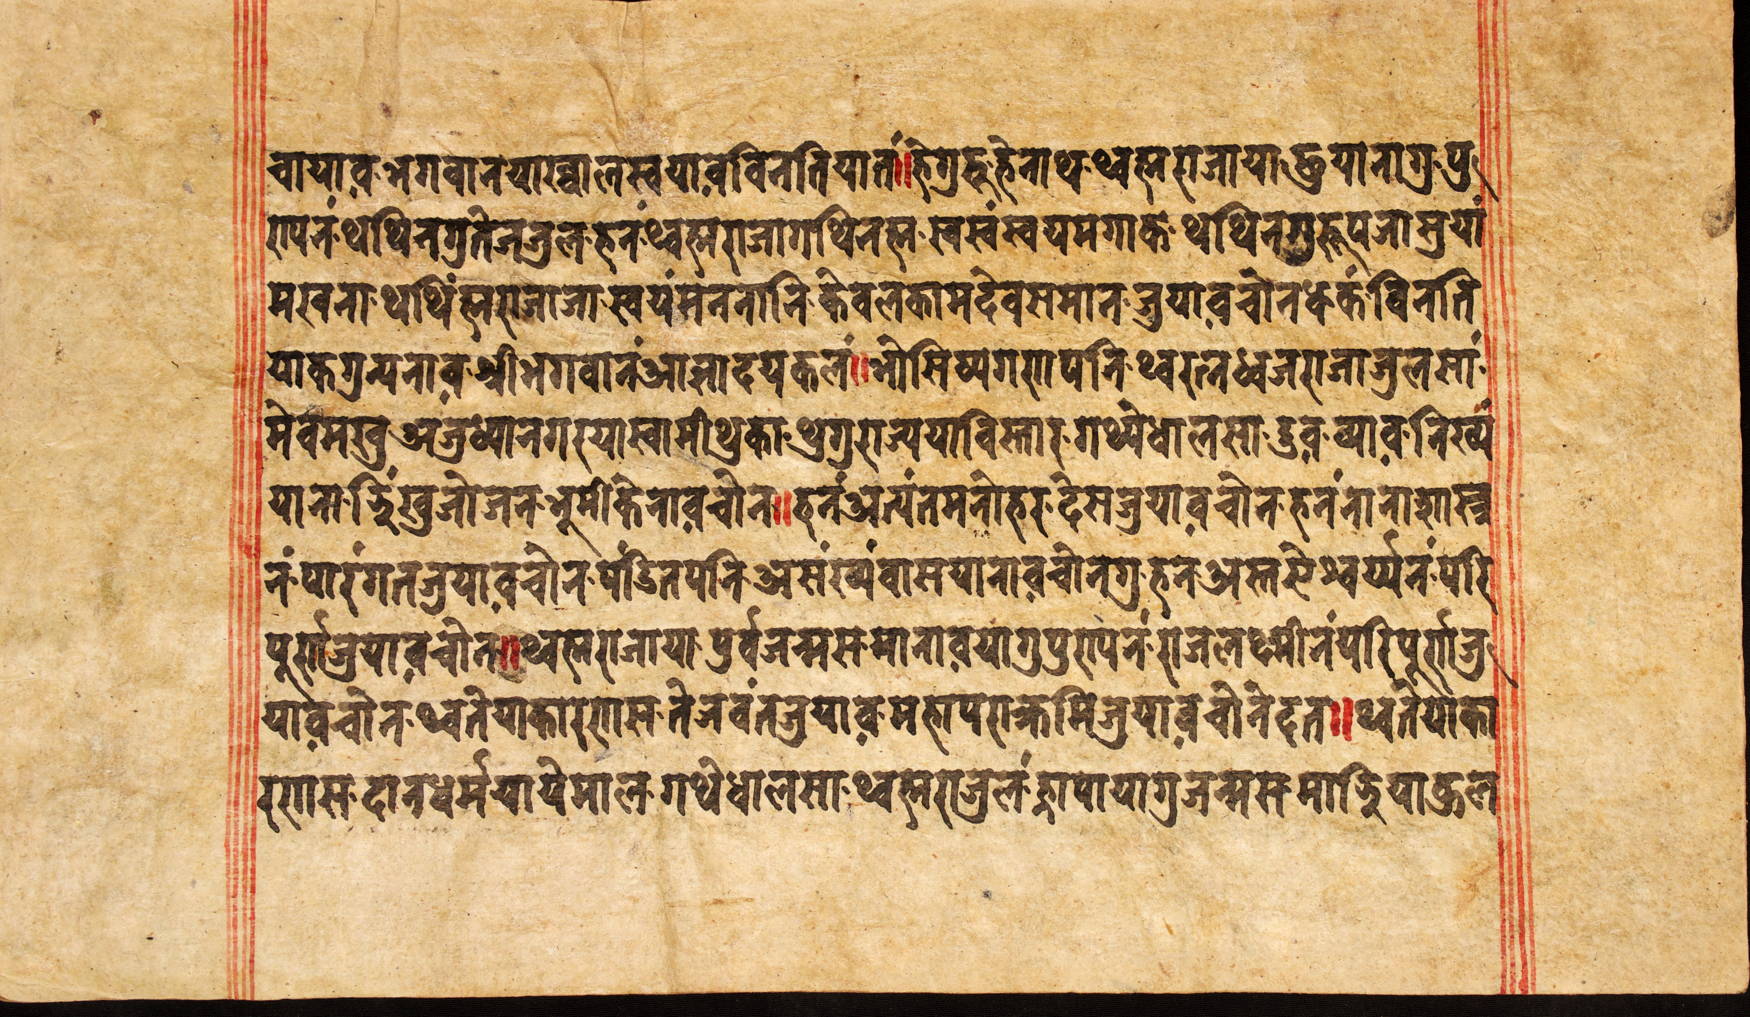 चायाव भगवानयाख्वालस्वयाव विनतियातं॥ हेगुरु हेनाथ थ्वह्मराजाया छुयानागु पु
रापनं थथिनगु तेजजुल हनं थ्वह्मराजा गथिनह्म स्वस्वं स्वयमगाक थथिनगु रूपजा मुयां
मखना थथिंह्मराजाजा स्वयंमननानि केवलकामदेवसमान जुयावचोन धकं विनति
याकगुन्यनाव श्रीभगवानं आज्ञादयकलं॥ भोसिष्यगणपनि थ्व रत्नध्वजराजाजुलसां
मेवमखु अजुध्यानगरयास्वामीथुका थुगुराज्ययाविस्तार गथ्यधालसा डुव व्याव निख्यं
यानाङिंखुजोजन भूमीकेनावचोन॥ हनं अत्यंतमनोहर देसजुयावचोन हनं नानाशास्त्र
नं पारंगतजुयावचोन पंडितपनि असंख्यंवासयानावचोनगु हनं अस्तऐश्वर्य्यनं परि
पूर्णजुयावचोन॥ थ्वह्मराजाया पुर्वजन्मस मानावयागु पुरापनं राजलक्ष्मीनं परिपूर्णजु
यावचोन थ्वतेयाकारणस तेजवंतजुयाव महापराक्रमिजुयावचोनेदत॥ थ्वतेयाका
रणस दानधर्मयायेमाल गथेधालसा थ्वह्मराजुलं ह्नापायागुजन्मस माङियाकुल